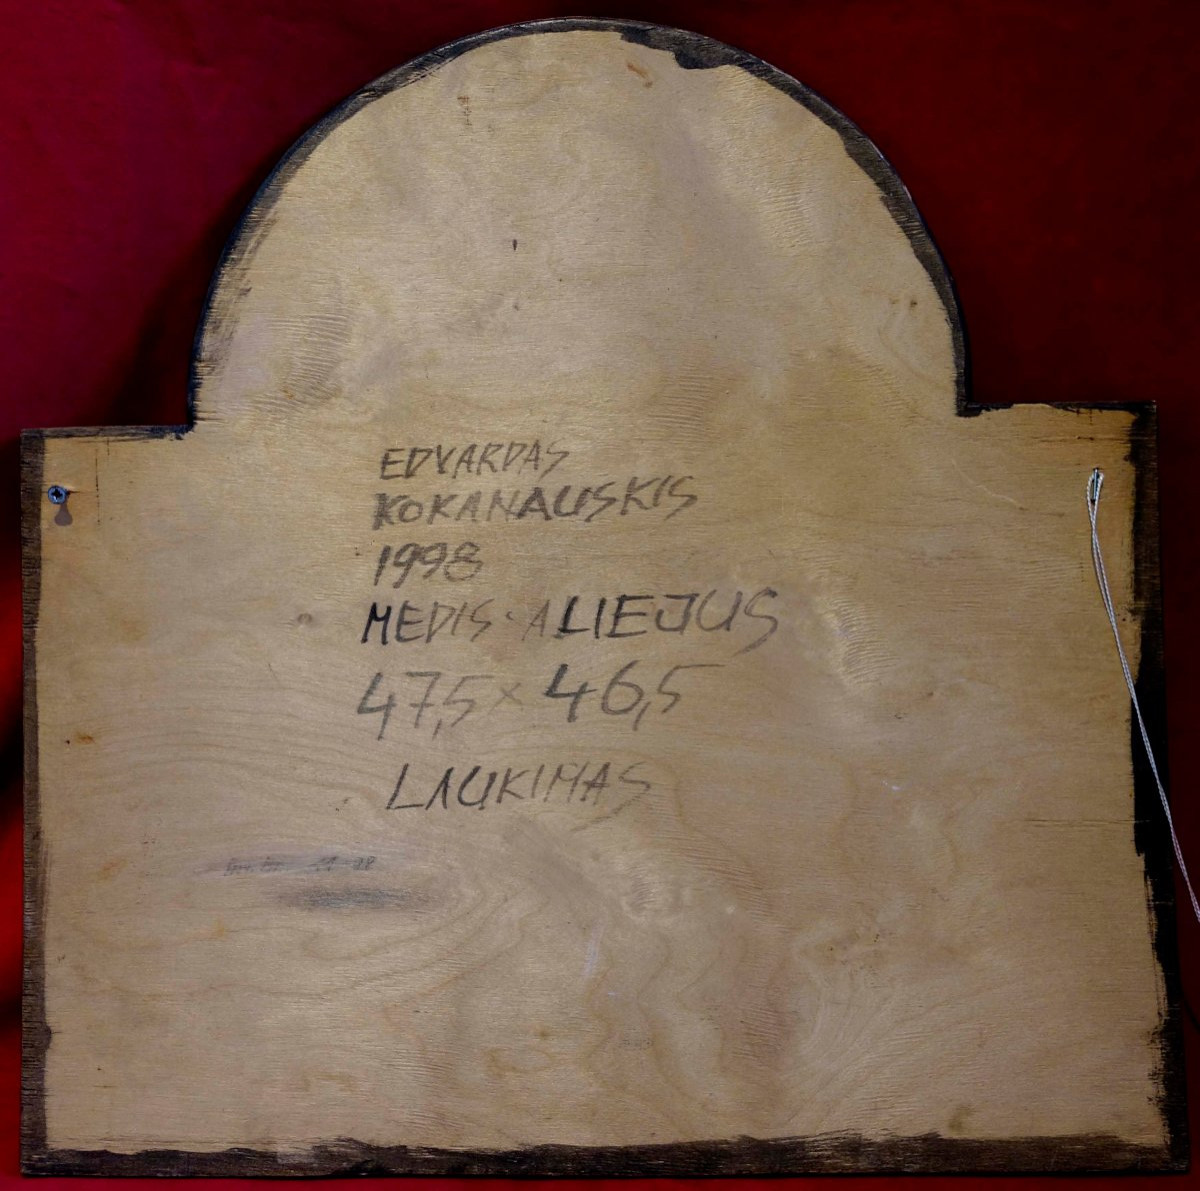 EDVARDAS
KOKANAUSKIS
1998
MEDIS·ALIEJUS
47,5 × 46,5
LAUKIMAS